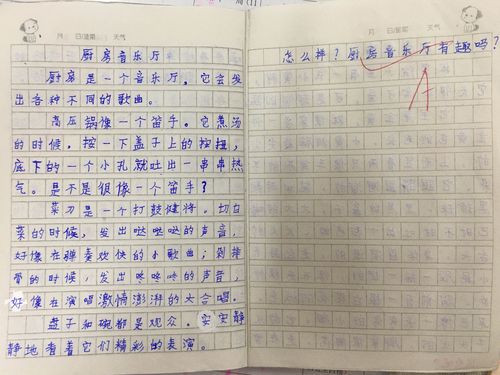 月 日/星期 天气
厨房音乐厅
厨房是一个音乐厅，它会发
出各种不同的歌曲。
高压锅像一个笛手。它煮汤
的时候，按一下盖子上的按扭，
底下的一个小孔就吐出一串串热
气。是不是很像一个笛手？
菜刀是一个打鼓健将。切白
菜的时候，发出哒哒哒的声音，
好像在弹奏欢快的小歌曲；剁排
骨的时候，发出咚咚咚的声音，
好像在演唱激情澎湃的大合唱。
盘子和碗都是观众。安安静
静地看着它们精彩的表演。
月 日/星期 天气
怎么样？厨房音乐厅有趣吗？
A